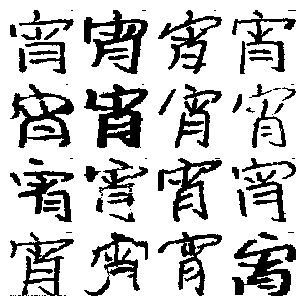 宵宵宵宵
宵宵宵宵
宵宵宵宵
宵宵宵宵